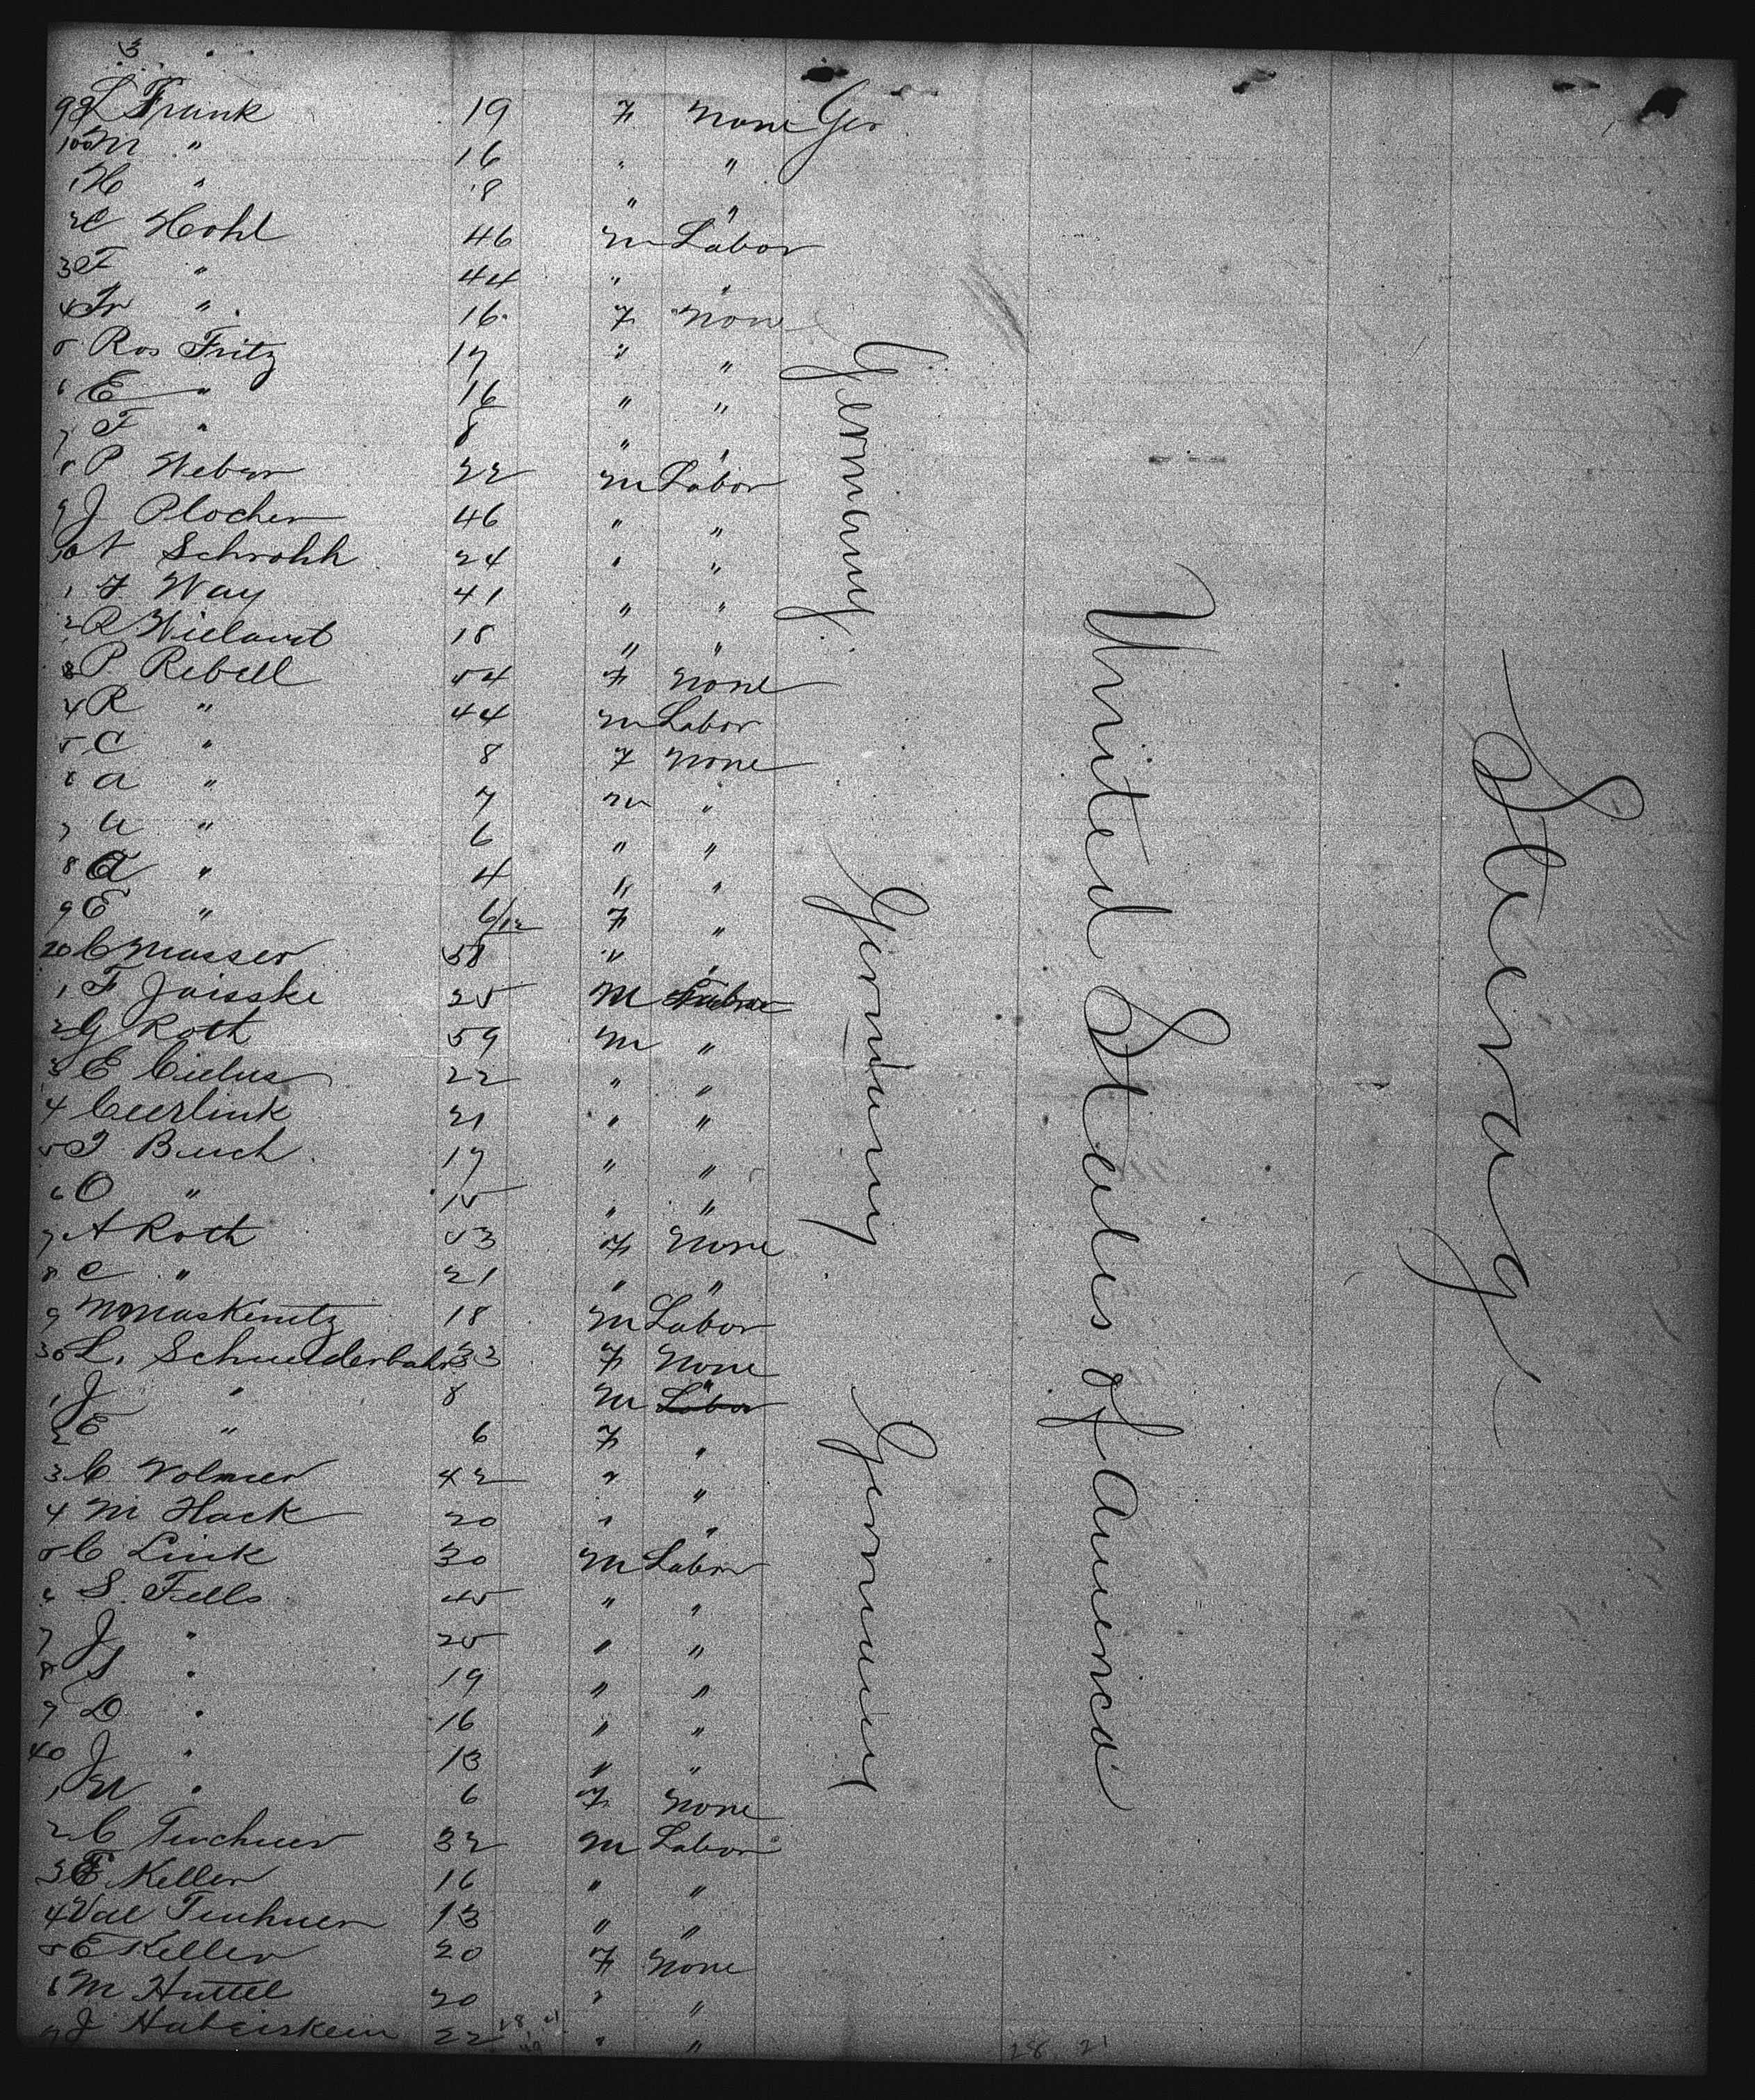 3
99 L Frank 19 F None Ger
100 M " 16 " "
1 H " 18 " "
2 C Hohl 46 M Labor
3 F " 44 " "
4 Fr " 16 F None
5 Ros Fritz 17 " "
6 E " 16 " "
7 F " 8 " "
8 P Weber 22 M Labor
9 J Plocher 46 " "
10 A Schrohh 24 " "
1 F Way 41 " "
2 R Wielandt 18 " "
3 P Rebell 54 F None
4 R " 44 M Labor
5 C " 8 F None
6 A " 7 M "
7 U " 6 " "
8 A " 4 " "
9 E " 6/12 F "
20 C Musser 58 " "
1 F Joisske 25 M Labor
2 G Roth 59 M "
3 E 22 " "
4 21 " "
5 J Buch 17 " "
6 O " 15 " "
7 A Roth 53 F None
8 C " 21 " "
9 M Maskinitz 18 M Labor
30 L. Schneiderbahr 33 F None
1 J " 8 M Labor "
2 E " 6 F "
3 C Volmer 42 " "
4 M Hack 20 " "
5 C Link 30 M Labor
6 S. Fells 45 " "
7 J " 25 " "
8 S " 19 " "
9 D " 16 " "
40 J " 13 " "
1 M " 6 F None
2 C 32 M Labor
3 F Keller 16 " "
4 Val 13 " "
5 E Keller 20 F None
6 M Huttel 20 " "
7 J 22 " "
Germany
Germany
Germany
United States of America
Steerag
28 21